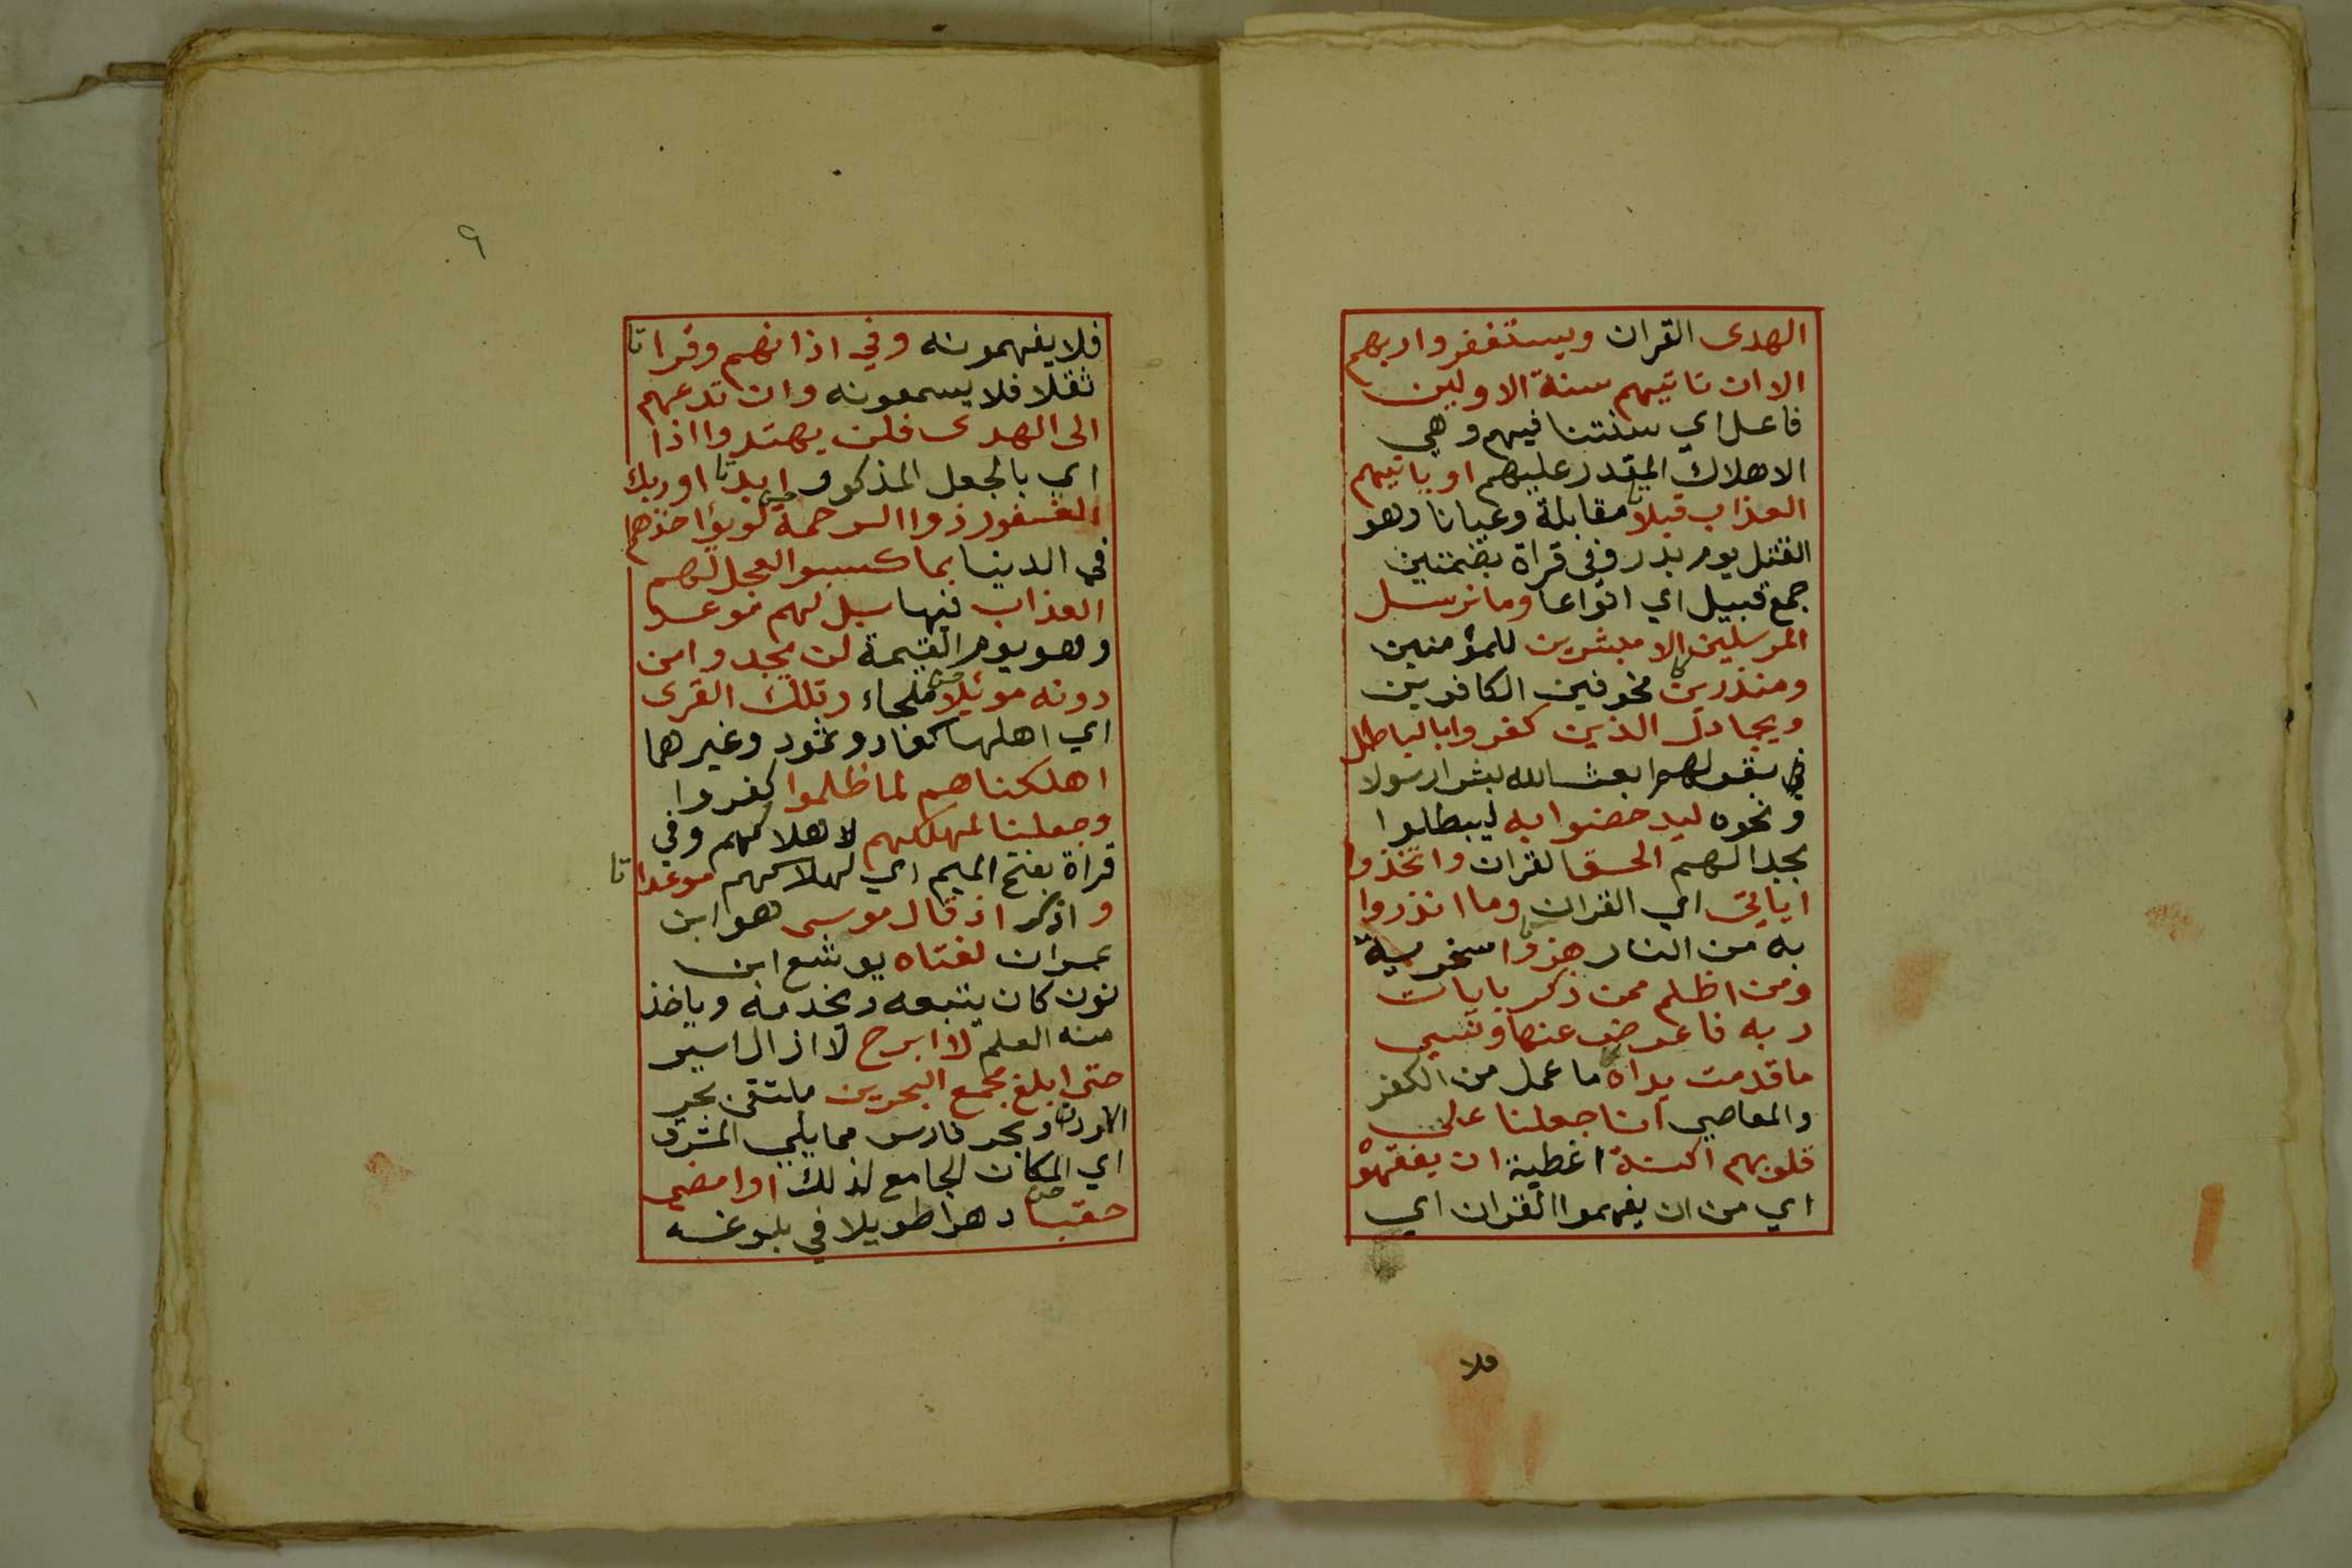 الهدى القران ويستغفروا ربهم
الا ان تاتيهم سنة الاولين
فاعل اي سنتنا فيهم وهي
الاهلاك المقدر عليهم او ياتيهم
العذاب قبلا مقابلة وعيانا وهو
القتل يوم بدر وفي قراة بضمتين
جمع قبيل اي انواعا وما نرسل
المرسلين الا مبشرين للمؤمنين
ومنذرين مخوفين الكافرين
ويجادل الذين كفروا بالباطل
بقولهم ابعث الله بشرا رسولا
ونحوه ليدحضوا به ليبطلوا
بجدالهم الحق القران واتخذوا
اياتي اي القران وما انذروا
به من النار هزوا سخرية
ومن اظلم ممن ذكر بايات
ربه فاعرض عنها ونسي
ما قدمت يداه ما عمل من الكفر
والمعاصي انا جعلنا على
قلوبهم اكنة اغطية ان يفقهوه
اي من ان يفهموا القران اي
فلا
٩
فلا يفهمونه وفي اذانهم وقرا تا
ثقلا فلا يسمعونه وان تدعهم
الى الهدى فلن يهتدوا اذا
اي بالجعل المذكور ابدا تا وربك
الغفور ذوا الرحمة لو يؤاخذهم
في الدنيا بما كسبوا لعجل لهم
العذاب فيها بل لهم موعد
وهو يوم القيمة لن يجدوا من
دونه موئلا ملجاء وتلك القرى
اي اهلها كعاد وثمود وغيرهما
اهلكناهم لما ظلموا كفروا
وجعلنا لمهلكهم لاهلاكهم وفي
قراة بفتح الميم اي لهلاكهم موعدا تا
واذكر اذ قال موسى هو ابن
عمران لفتاه يوشع ابن
نون كان يتبعه ويخدمه وياخذ
منه العلم لا ابرح لا ازال اسير
حتى ابلغ مجمع البحرين ملتقى بحر
الاردن وبحر فارس مما يلي المشرق
اي المكان الجامع لذلك اوامضي
حقبا دهرا طويلا في بلوغه